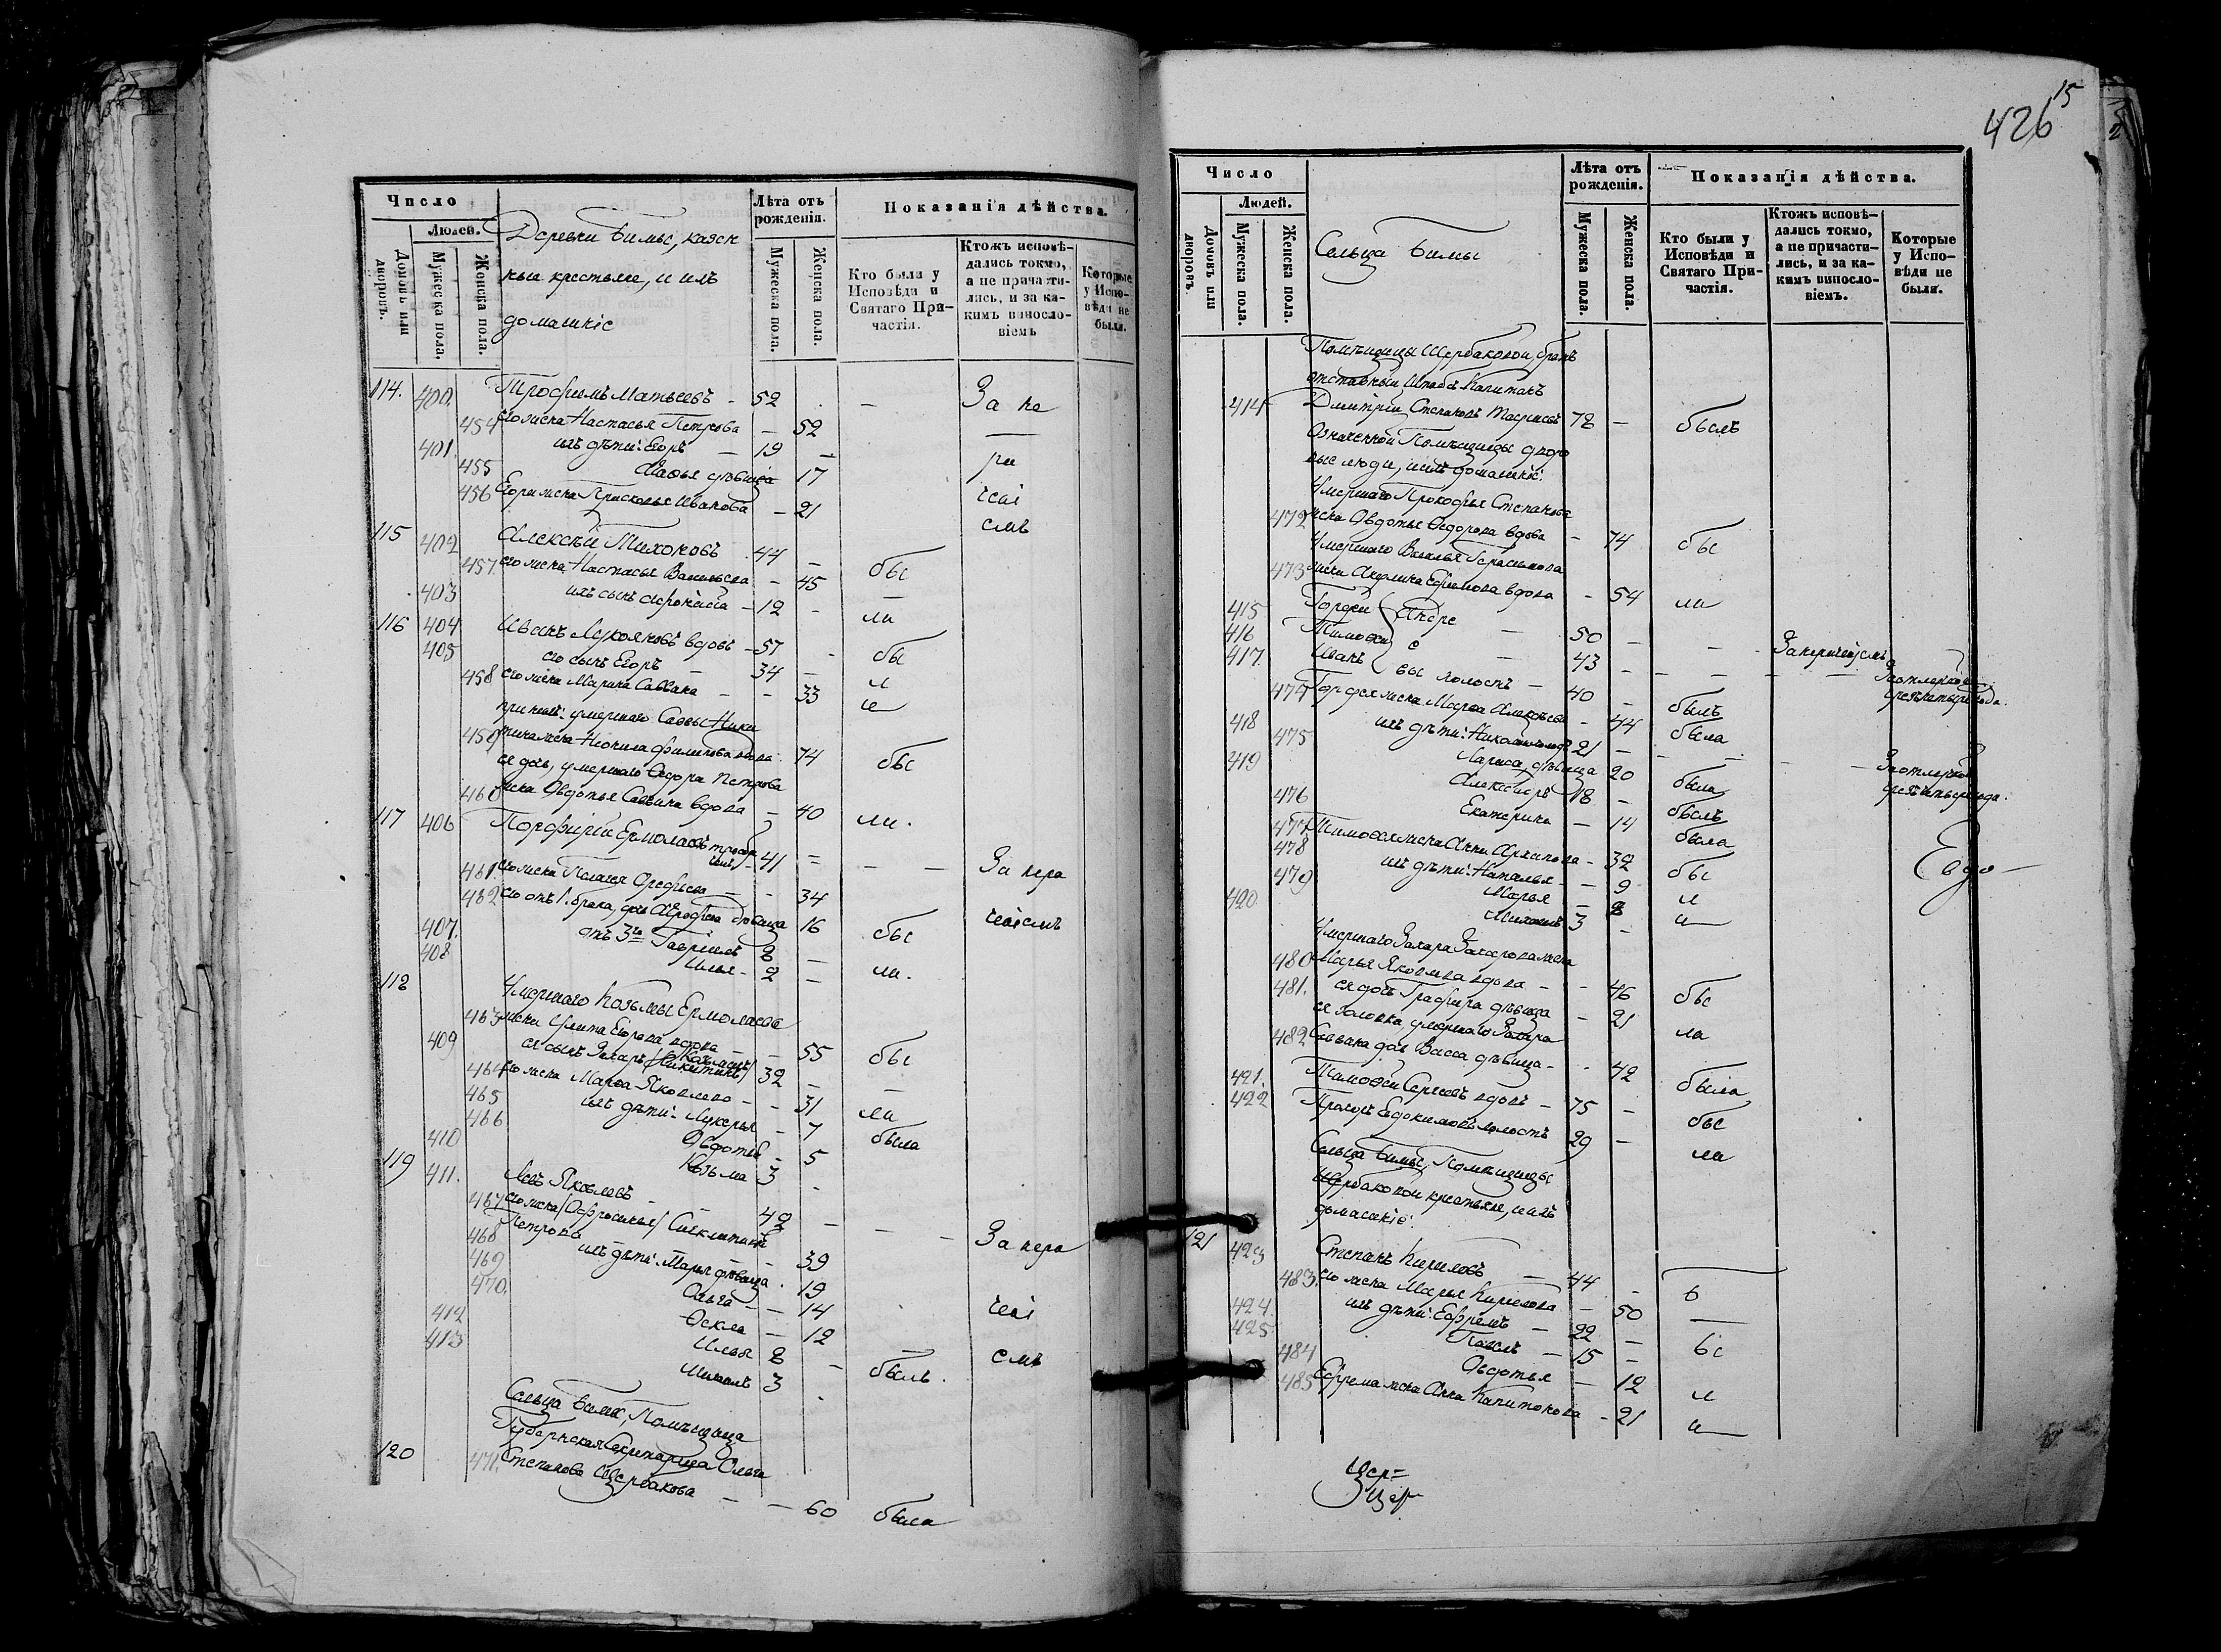 Число
Людей.
Домовъ или дворовъ.
Мужеска пола.
Женска пола.
Деревни Бимы, казен
ныи крестьяне, и ихъ
домашніе
Лѣта отъ рожденія.
Мужеска пола.
Женска пола.
Показанія дѣйства.
Кто были у Исповѣди и Святаго Причастія.
Ктожъ исповѣдались токмо, а не причастились, и за какимъ винословіемъ
Которые у Исповѣди не были.
114. 400. Трофимъ Матвеевъ - 52 - За не
454 его жена Настасья Петрова - 52
401. ихъ дѣти: Егоръ - 19 -
455 дѣвица 17 ра
456 Егора жена Прасковья Иванова - 21 чеі
смъ
115 402 Алексѣй Тихоновъ 44 -
457. его жена Настасья Васильева - 45 бы
403 ихъ сынъ - 12 - ли
116 404 Иванъ вдовъ - 57 -
405 его сынъ Егоръ - 34 - бы
458 его жена Марина Саввина - - 33 л
и
умершаго Саввы Ники
459 тина жена Неонила Филипова вдова 74 бы
ея дочь, умершаго Ѳедора Петрова
460 жена Овдотья Саввина вдова - 40 ли.
117 406 Порфирій Ермолаевъ 41 = - - За нера
461 его жена Пелагея - - 34
462 его отъ 1. брака, дочь дѣвица 16 бы чеісмъ
407. отъ 3го Гавріилъ 8 -
408 Илья - 2 - ли.
118 Умершаго Козьмы Ермолаева
463 жена Улита Егорова вдова - - 55 бы
409 ея сынъ Захаръ /Никитинъ/ 32 - -
464 его жена Марѳа Яковлева - - 31 ли
465 ихъ дѣти: Лукерья - 7
466 Овдотья - 5 была
410 Козьма 3 -
119 411. Левъ Яковлевъ - 42 - - - За нера
467 его жена /Офросинья/
Петрова - - 39
468 ихъ дѣти: Марья дѣвица . 19
469 Ольга - - 14 чеі
470. Ѳекла - 12
412 Илья 8 - смъ
413 Михаилъ 3 . былъ.
Сельца Бимы, Помѣщица
Губернская Секретарша Ольга
120 471. Степанова Щербакова - - 60 была
426 15
Число
Людей.
Домовъ или дворовъ.
Мужеска пола.
Женска пола.
Сельца Бимы
Лѣта отъ рожденія.
Мужеска пола.
Женска пола.
Показанія дѣйства.
Кто были у Исповѣди и Святаго Причастія.
Ктожъ исповѣдались токмо, а не причастились, и за какимъ винословіемъ.
Которые у Исповѣди не были.
Помѣщицы Щербаковой братъ
отставный Штабсъ Капитанъ
414 Дмитрій Степановъ 72 - былъ
Означенной Помѣщицы дворо
вые люди, и ихъ домашніе:
Умершаго Прокофья Степанова
472 жена Овдотья Ѳедорова вдова - 74 бы
Умершаго Василья Герасимова
473 жена Акулина Ефимова вдова - 54 ли
415 Гордей Андре - 50 - - - За нерачеіемъ
416 Тимоѳей е - 43 - - - - -
417. Иванъ вы холостъ - 40 - былъ
474 Гордея жена Марѳа Алексѣева - 44 была
418 ихъ дѣти: Николай 21 - - - - -
475 Лариса дѣвица 20 была
419 Александръ 18 - былъ
476 Екатерина - 14 была
477 Тимоѳея жена Анна Архипова - 32 бы
478 ихъ дѣти: Наталья - - 9 л
479 Марья - 8 и
420. Михаилъ 3 -
Евдо-
Умершаго Захара Захарова жена
480 Марья Яковлева вдова - - 46 бы
481. ея дочь Глафира дѣвица - 21 ла
ея золовка умершаго Захара
482 Саввина дочь Васса дѣвица - - 42 была
421. Тимоѳей Сергеевъ вдовъ - 75 - бы
422 Прохоръ Евдокимовъ холостъ 29 - ли
Сельца Бимы, Помѣщицы
Щербаковой крестьяне, и ихъ
домашніе:
121 423 Степанъ Кириловъ - 44 - б
483. его жена Марья Кирилова - 50
424. ихъ дѣти: Ефремъ - 22 -
425 Павелъ - 15 - ы
484 Овдотья - 12 л
485 Ефрема жена Анна Капитонова - 21 и